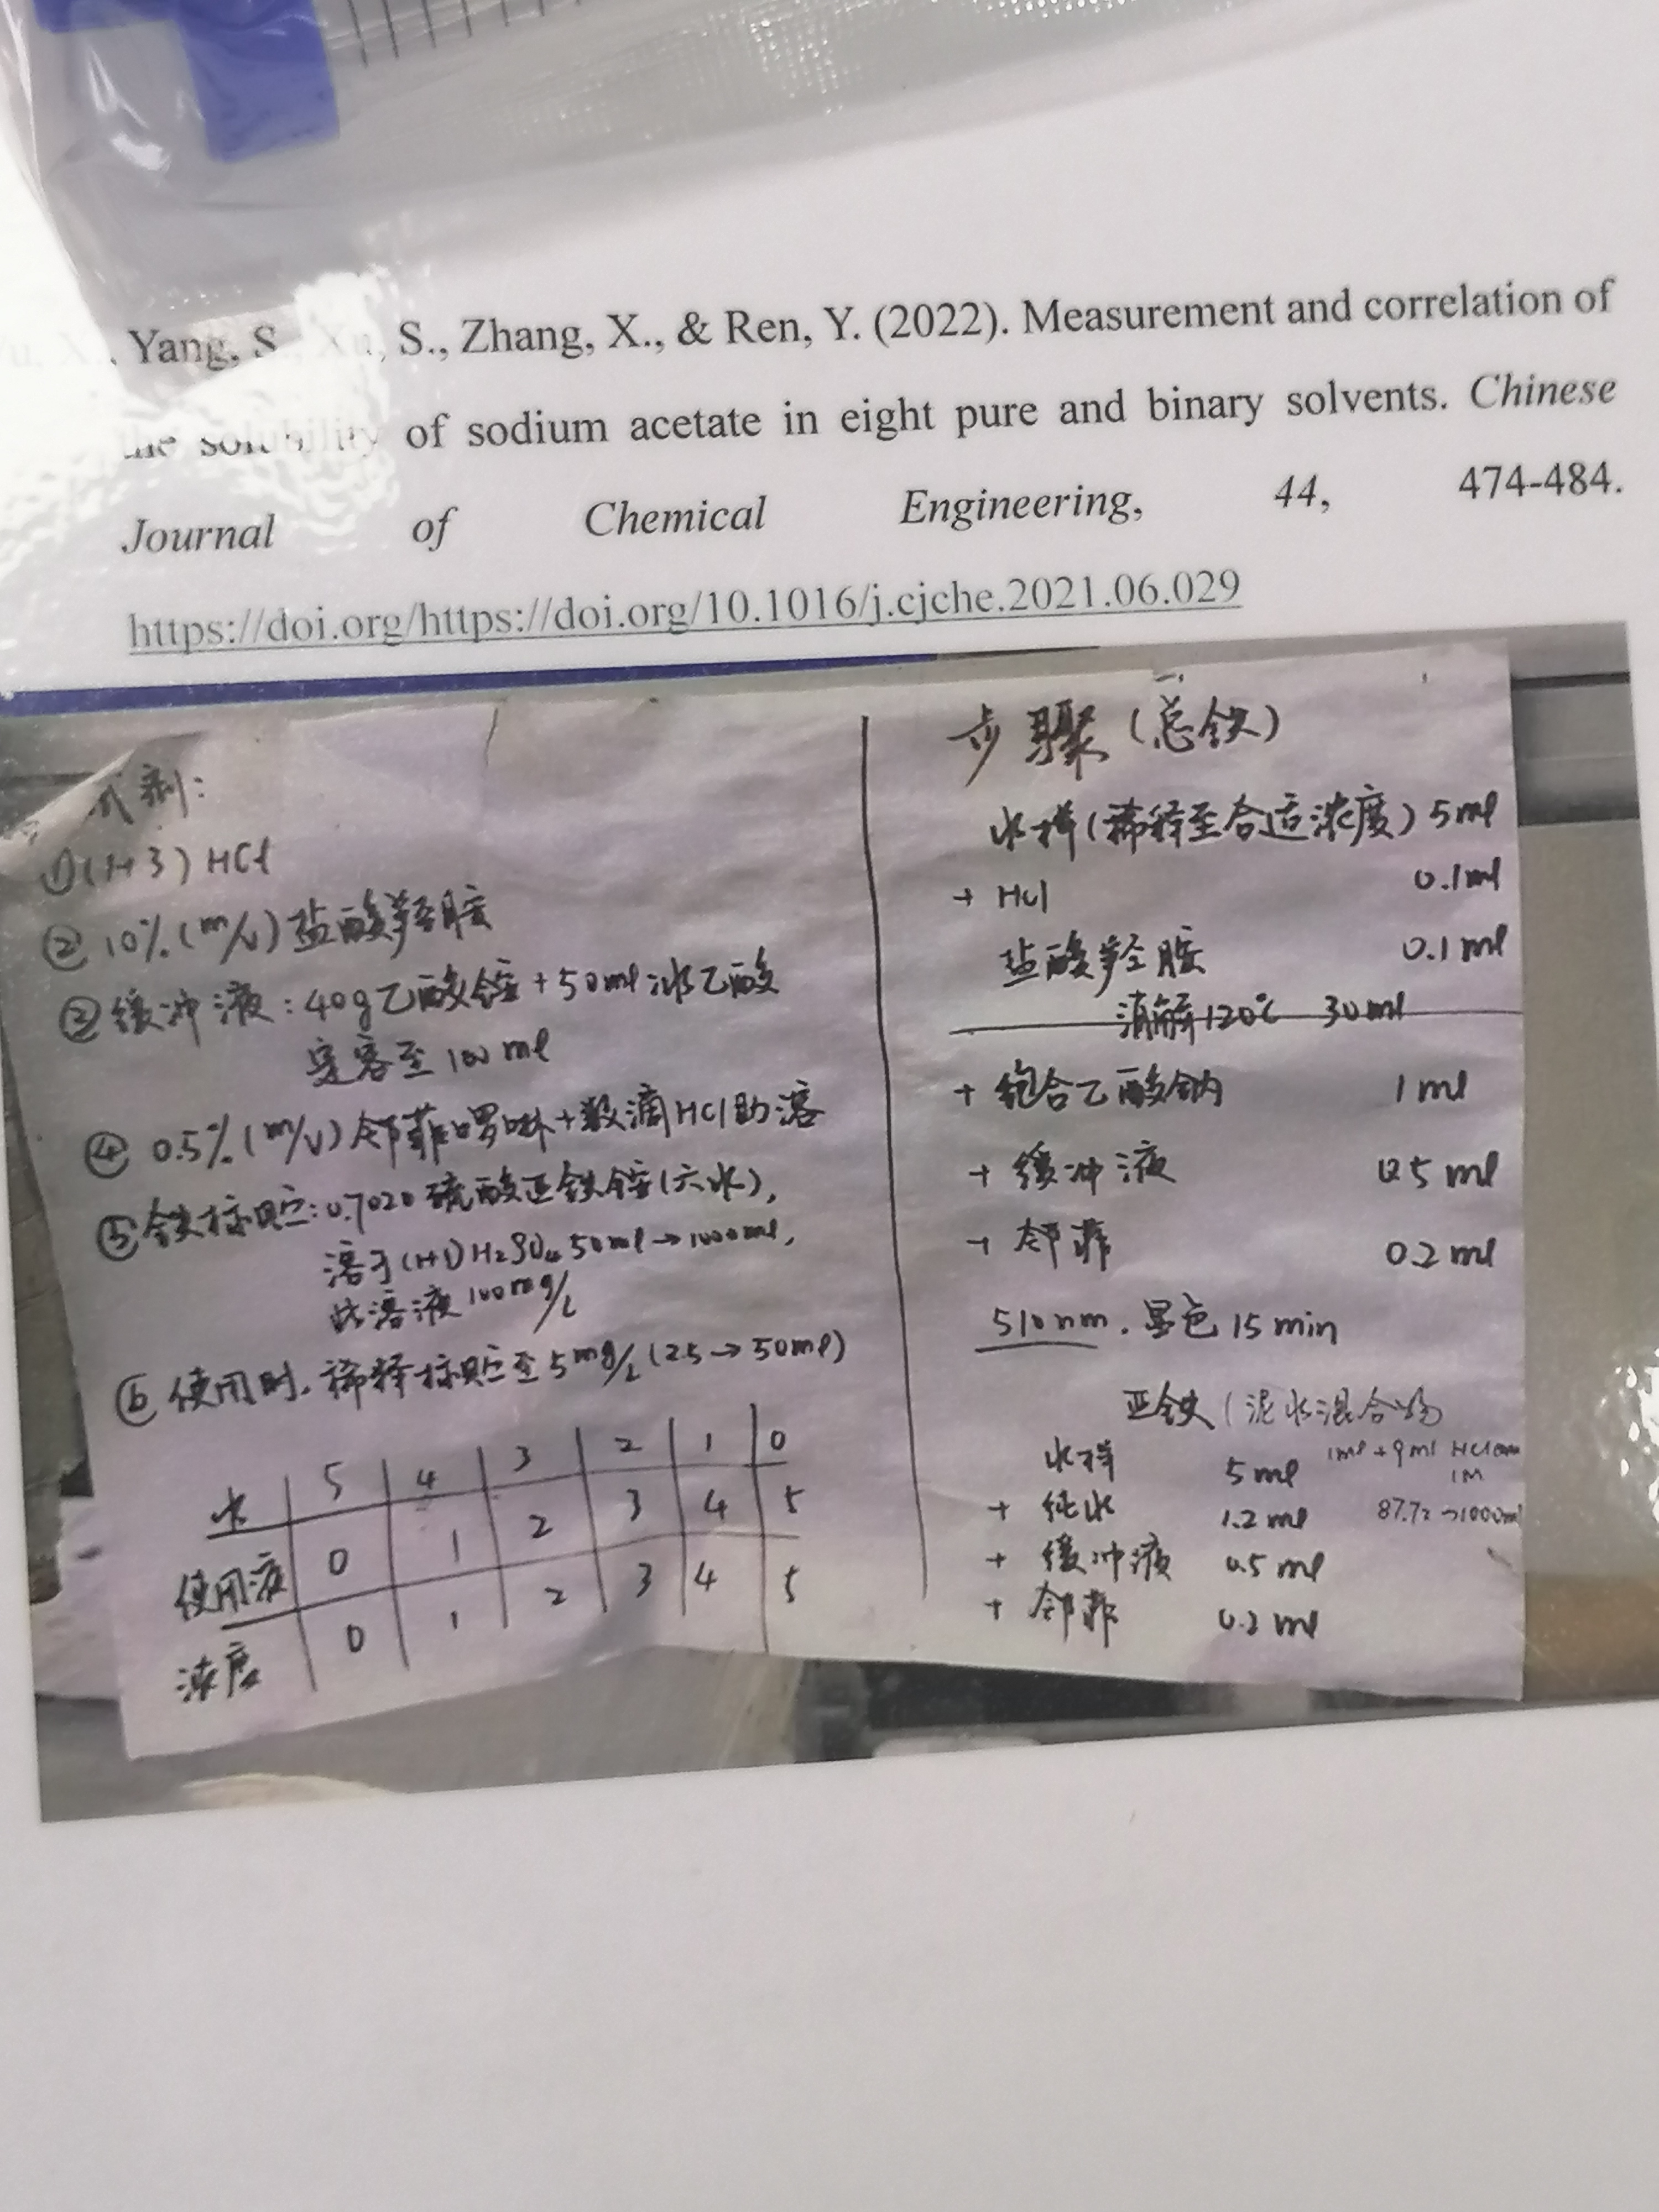 Yang, S., Xu, S., Zhang, X., & Ren, Y. (2022). Measurement and correlation of
the solubility of sodium acetate in eight pure and binary solvents. Chinese
Journal of Chemical Engineering, 44, 474-484.
https://doi.org/https://doi.org/10.1016/j.cjche.2021.06.029
试剂:
①(1+3) HCl
② 10%(m/v)盐酸羟胺
③ 缓冲液:40g乙酸铵+50ml冰乙酸
定容至100ml
④ 0.5%(m/v)邻菲啰啉+数滴HCl助溶
⑤ 铁标贮:0.7020硫酸亚铁铵(六水),
溶于(1+1)H2SO4 50ml→1000ml,
此溶液100mg/L
⑥ 使用时,稀释标贮至5mg/L(2.5→50ml)
水 5 4 3 2 1 0
使用液 0 1 2 3 4 5
浓度 0 1 2 3 4 5
步骤(总铁)
水样(稀释至合适浓度)5ml
+ HCl 0.1ml
盐酸羟胺 0.1ml
消解120℃ 30ml
+ 饱合乙酸钠 1ml
+ 缓冲液 0.5ml
+ 邻菲 0.2ml
510nm.显色15min
亚铁(泥水混合物
水样 5ml 1ml+9ml HCl
1M
+ 纯水 1.2ml 87.72→1000ml
+ 缓冲液 0.5ml
+ 邻菲 0.2ml